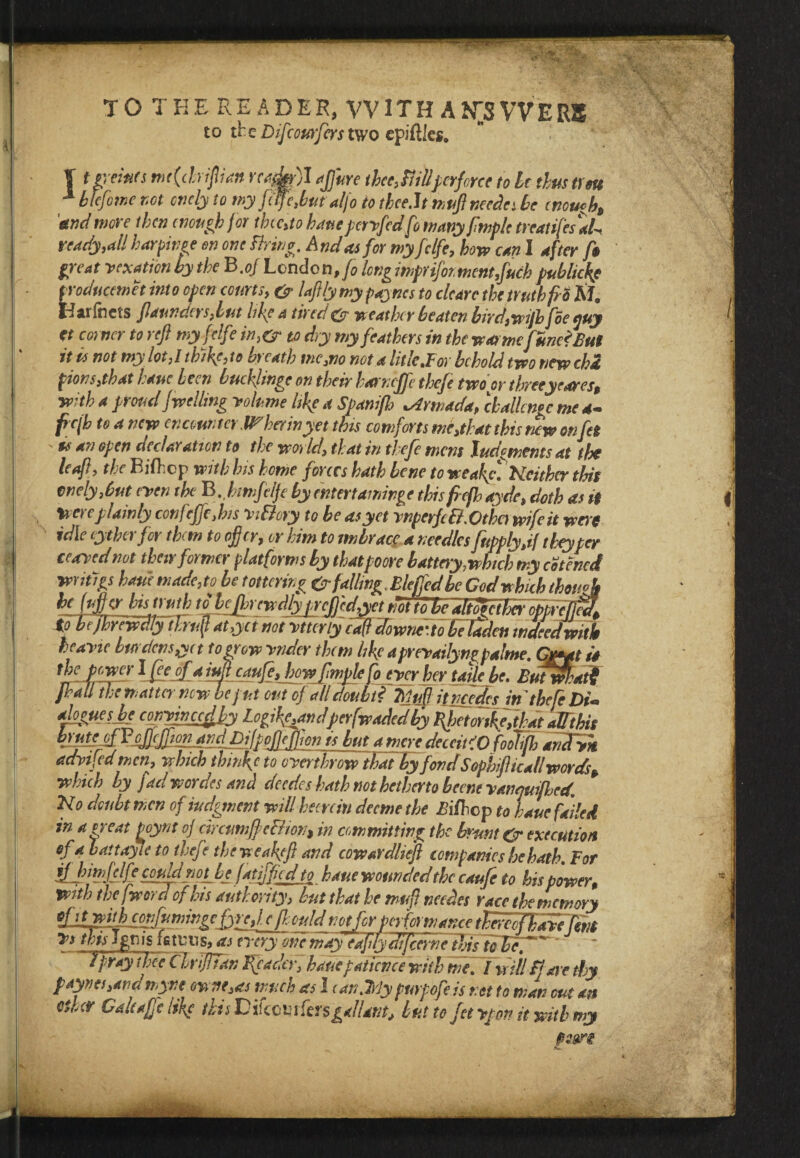 TO THE READER, VVITH ANSVVERE
to the Discoursers two epistles.
IT greiues me (christian reader) I assure thee, still perforce to be thus trou
blesome not onely to my selfe, but also to thee. It must needes be enough,
and more then enough for thee, to haue pervsed so many simple treatises al-
ready, all harpinge on one string. And as for my selfe, how can I after so
great vexation by the B. of London, so long imprisonment, such publicke
producemēt into open courts, & lastly my paynes to cleare the truth frō M.
Harsnets slaunders, but like a tired & weather beaten bird, wish soe quy
et corner to rest my selfe in, & to dry my feathers in the warme sunne? But
it is not my lot, I thīke, to breath me, no not a litle. For behold two new chā
pions, that haue been bucklinge on their harnesse these two or three yeares,
with a proud swelling volume like a Spanish Armada, challenge me a-
fresh to a new encounter. Wherin yet this comforts me, that this new onset
is an open declaration to the world, that in these mens Iudgments at the
least, the Bishop with his home forces hath bene to weake. Neither this
onely, but even the B. himselfe by entertaminge this fresh ayde, doth as it
were plainly confesse, his victory to be as yet vnperfect. Other wise it were
idle eyther for them to offer, or him to imbrace a needles supply, if they per
ceaved not their former platforms by that poore battery, which my cōtēned
writīgs haue made, to be tottering & falling. Blessed be God which though
he suffer his truth to be shrewdly pressed, yet not to be altogether oppressed,
to be shrewdly thrust at, yet not vtterly cast downe: to be laden indeed with
heavie burdens, yet to grow vnder them like a prevailyng palme. Great is
the power I see of a iust cause, how simple so ever her taile be. But what?
shall the matter now be put out of all doubt? Must it needes in these Di-
alogues be convinced by Logike, and perswaded by Rhetorike, that all this
brute of Possession and Dispossession is but a mere deceit? O foolish and vn
advised men, which thinke to overthrow that by fond Sophisticall words,
which by sad wordes and deedes hath not hetherto beene vanquished.
No doubt men of iudgment will heerein deeme the Bishop to haue failed
in a great poynt of circumspection, in committing the brunt & execution
of a battayle to these the weakest and cowardliest companies he hath. For
if himselfe could not be satisfied to haue wounded the cause to his power,
with the sword of his authority, but that he must needes race the memory
of it with consuminge fyre, he should not for performance thereof haue sent
vs this Ignis fatuus, as every one may easily discerne this to be.
I pray thee Christian Reader, haue patience with me. I will spare thy
paynes, and myne owne, as much as I can. My purpose is not to man out an
other Galeasse like this Discoursers gallant, but to set vpon it with my
poore